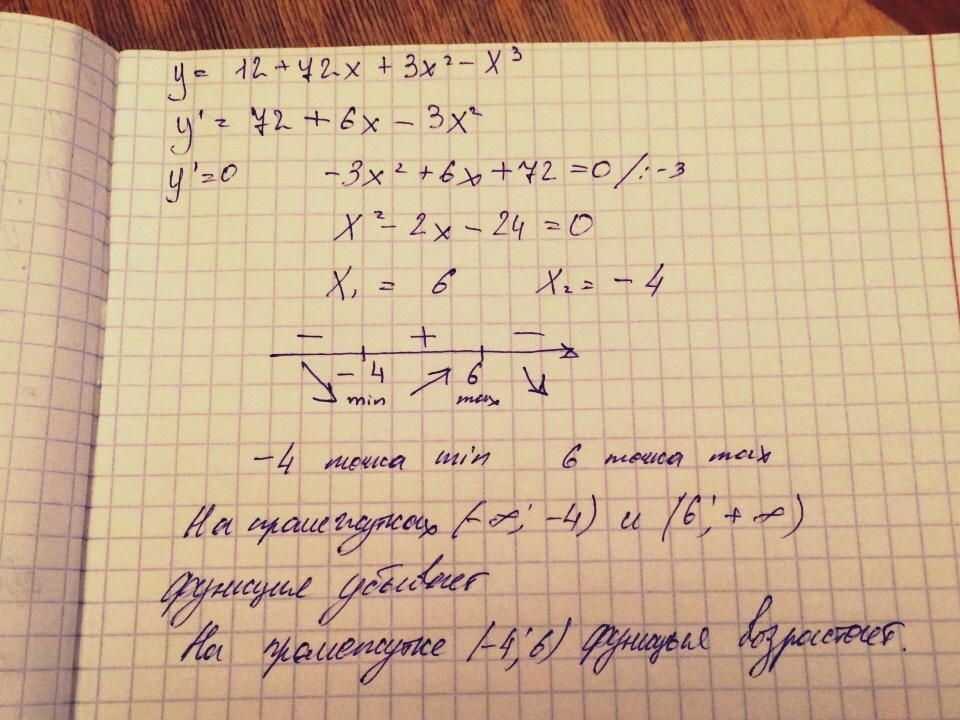 y = 12 + 72x + 3x² - x³
y' = 72 + 6x - 3x²
y' = 0 -3x² + 6x + 72 = 0 /: -3
x² - 2x - 24 = 0
x₁ = 6 x₂ = -4
- + -
-4 6
min max
-4 точка min 6 точка max
На промежутках (-∞; -4) и (6; +∞)
функция убывает
На промежутке (-4; 6) функция возрастает.